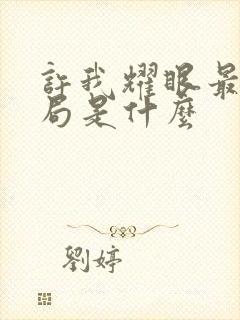 許我耀眼最
局是什麼
劉婷